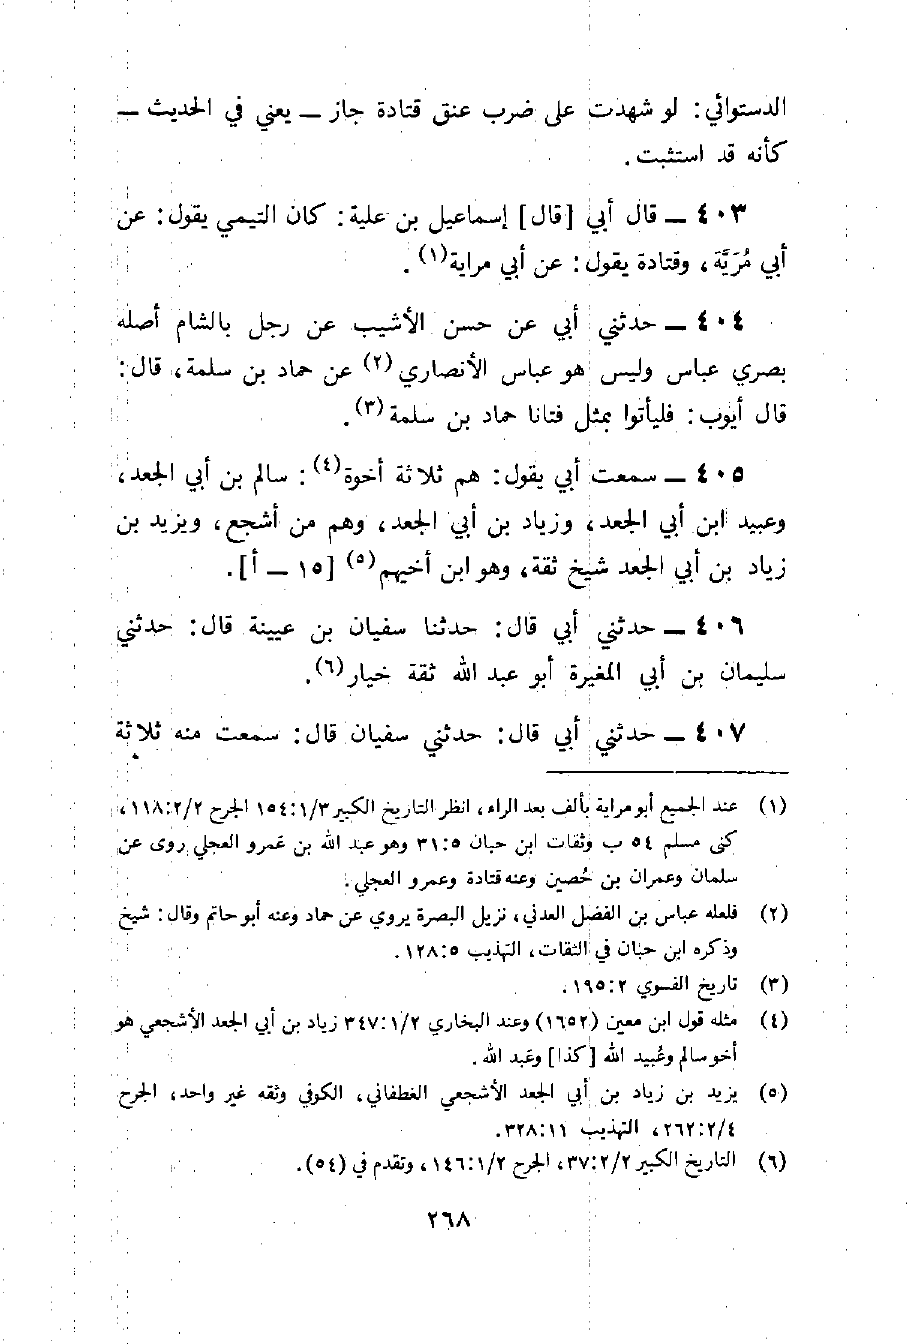 الدستوائي: لو شهدت على ضرب عنق قتادة جاز — يعني في الحديث —
كأنه قد استثبت.
٤٠٣ — قال أبي [قال] إسماعيل بن علية: كان التيمي يقول: عن
أبي مُرَيَّة، وقتادة يقول: عن أبي مراية(١).
٤٠٤ — حدثني أبي عن حسن الأشيب عن رجل بالشام أصله
بصري عباس وليس هو عباس الأنصاري(٢) عن حماد بن سلمة، قال:
قال أيوب: فليأتوا بمثل فتانا حماد بن سلمة(٣).
٤٠٥ — سمعت أبي يقول: هم ثلاثة أخوة(٤): سالم بن أبي الجعد،
وعبيد ابن أبي الجعد، وزياد بن أبي الجعد، وهم من أشجع، ويزيد بن
زياد بن أبي الجعد شيخ ثقة، وهو ابن أخيهم(٥) [١٥ — أ].
٤٠٦ — حدثني أبي قال: حدثنا سفيان بن عيينة قال: حدثني
سليمان بن أبي المغيرة أبو عبد الله ثقة خيار(٦).
٤٠٧ — حدثني أبي قال: حدثني سفيان قال: سمعت منه ثلاثة
(١) عند الجميع أبو مراية بألف بعد الراء، انظر التاريخ الكبير ١٥٤:١/٣ الجرح ١١٨:٢/٢،
كنى مسلم ٥٤ ب وثقات ابن حبان ٣١:٥ وهو عبد الله بن عَمرو العجلي روى عن
سلمان وعمران بن حُصين وعنه قتادة وعمرو العجلي.
(٢) فلعله عباس بن الفضل العدني، نزيل البصرة يروي عن حماد وعنه أبو حاتم وقال: شيخ
وذكره ابن حبان في الثقات، التهذيب ١٢٨:٥.
(٣) تاريخ الفسوي ١٩٥:٢.
(٤) مثله قول ابن معين (١٦٥٢) وعند البخاري ٣٤٧:١/٢ زياد بن أبي الجعد الأشجعي هو
أخو سالم وعُبيد الله [كذا] وعَبد الله.
(٥) يزيد بن زياد بن أبي الجعد الأشجعي الغطفاني، الكوفي وثقه غير واحد، الجرح
٢٦٢:٢/٤، التهذيب ٣٢٨:١١.
(٦) التاريخ الكبير ٣٧:٢/٢، الجرح ١٤٦:١/٢، وتقدم في (٥٤).
٢٦٨